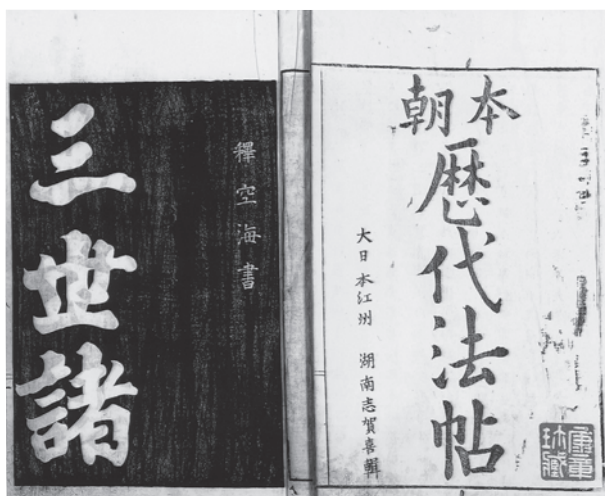 本朝
歴代法帖
大日本江州 湖南志賀喜輯
釋空海書
三世諸